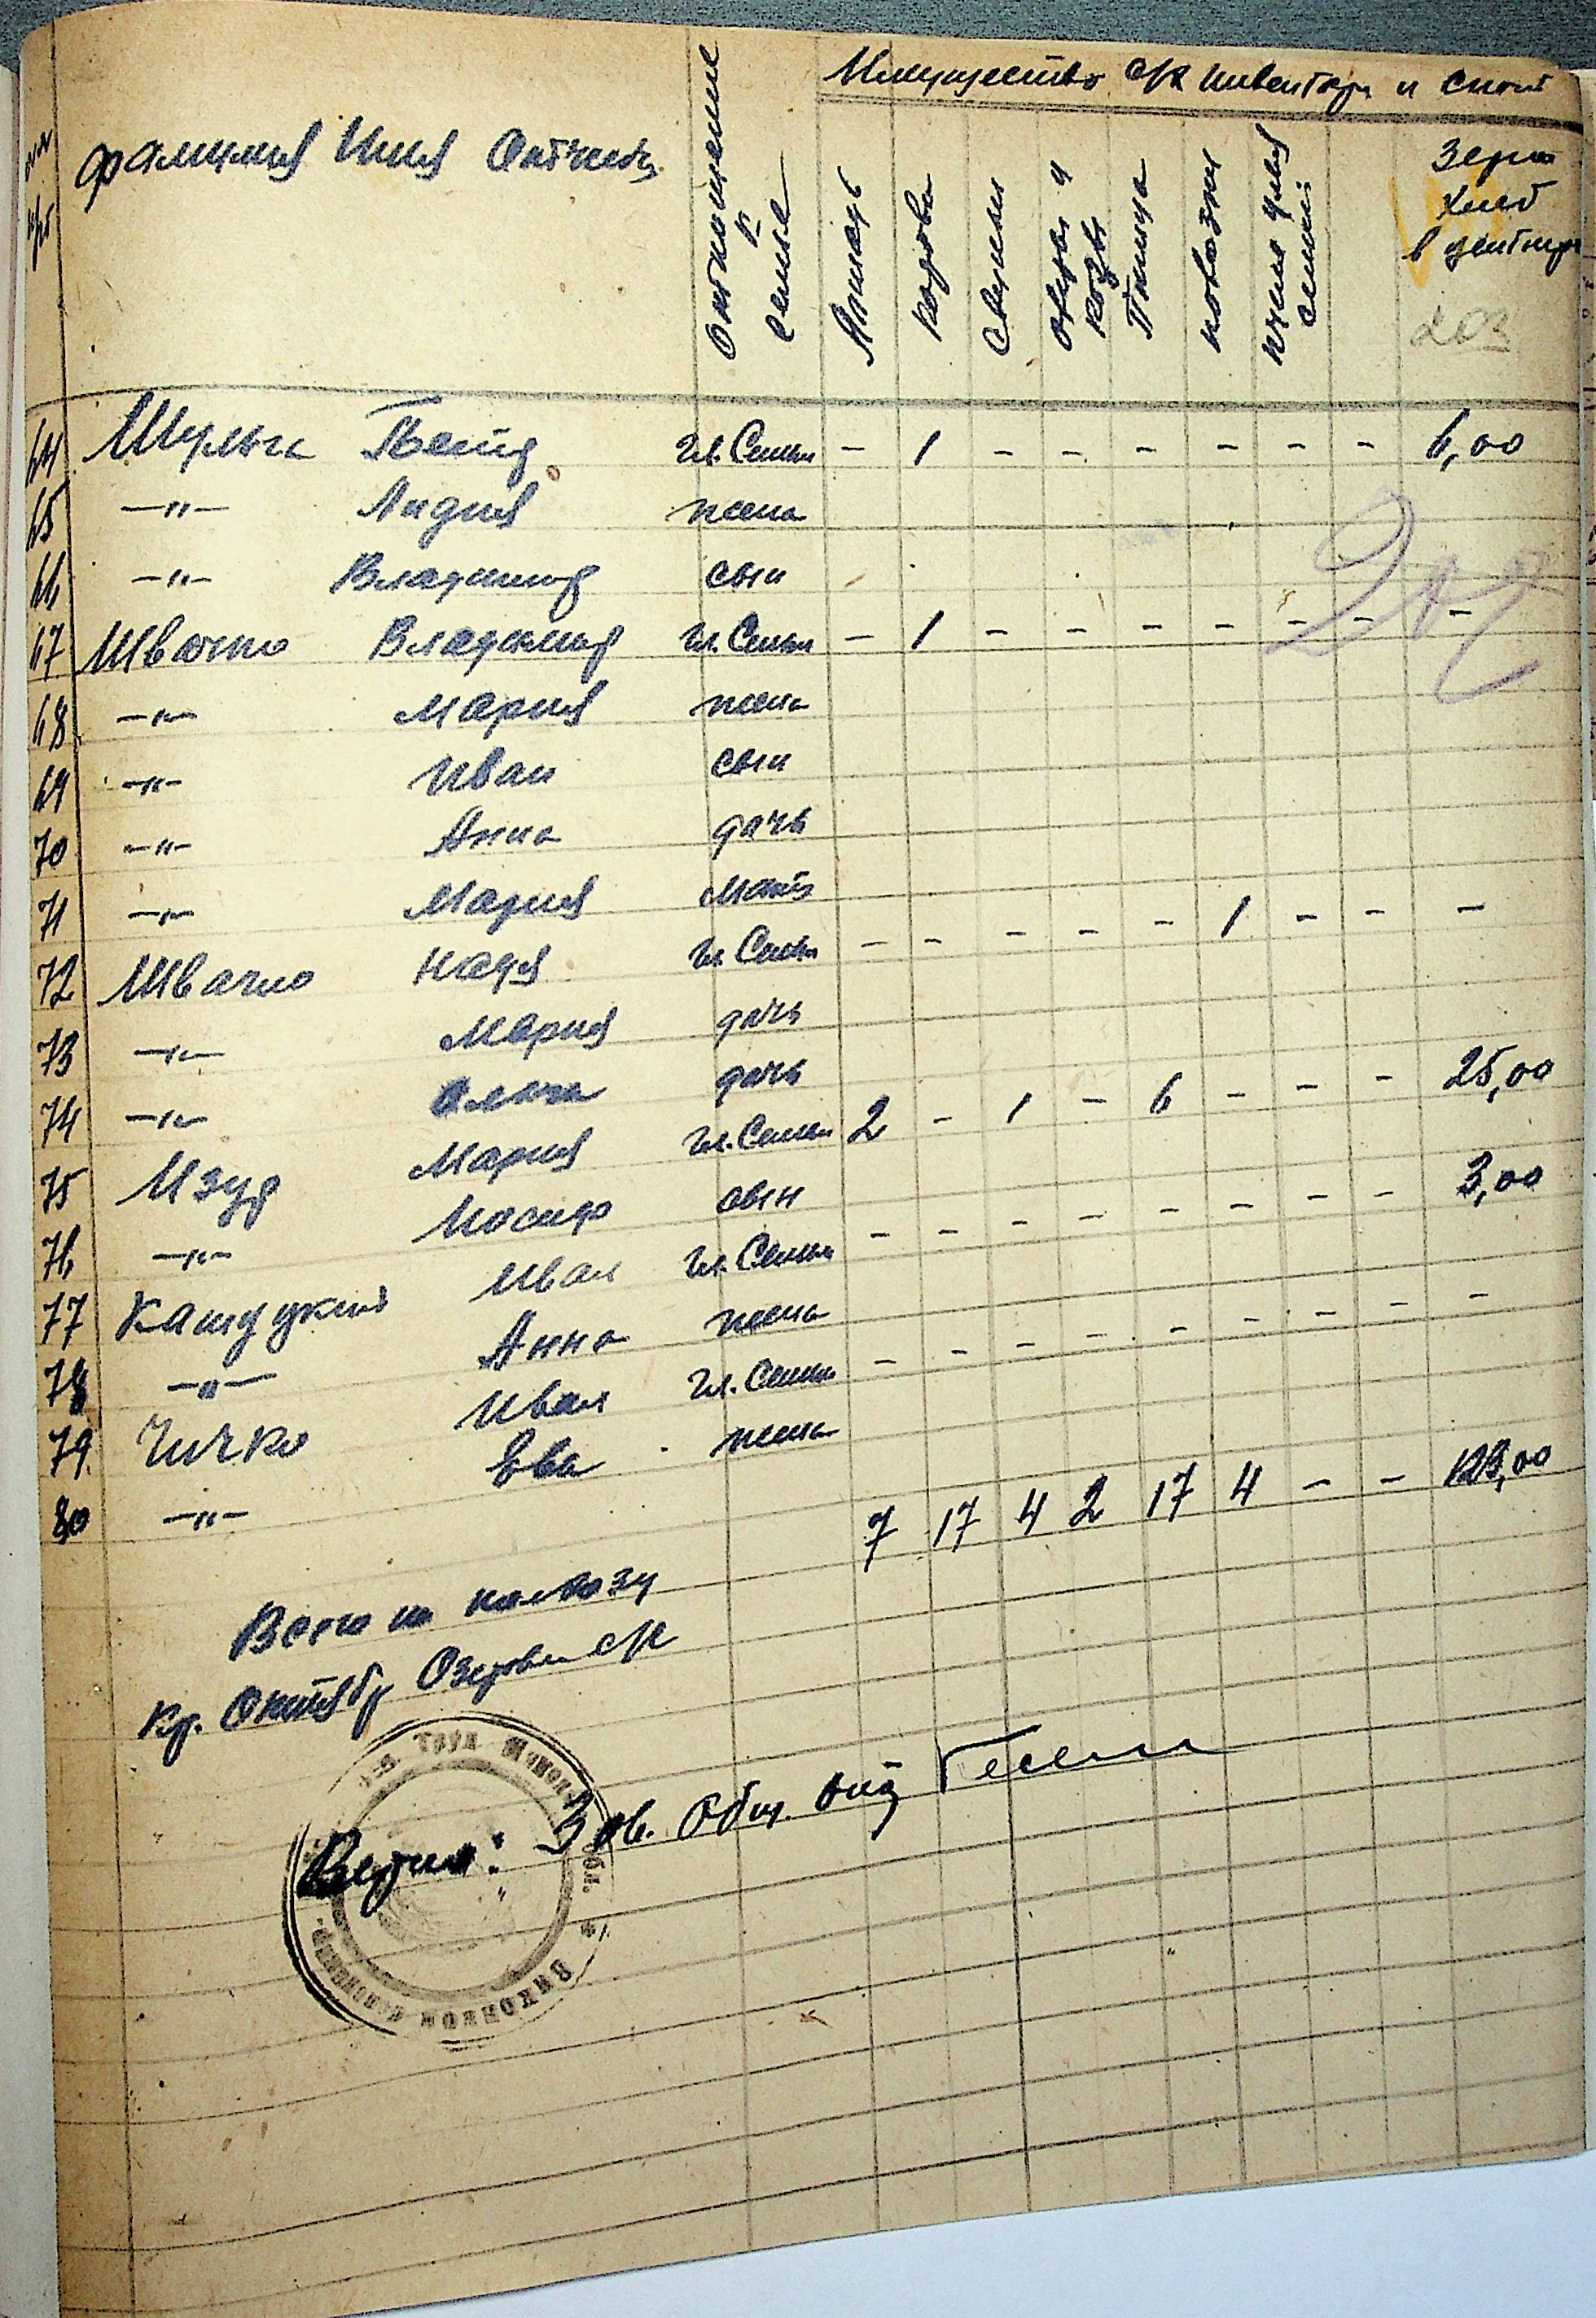 Имущество с/х инвентарь и скот
Фамилия Имя Отчество
Отношение к семье
Лошадь
корова
свиньи
овцы и козы
Птица
повозка
пчел улья семей
Зерно хлеб в центнер
203
64 Шульга гл. Семьи - 1 - - - - - - 6,00
65 -"- Лидия жена
66 -"- Владимир сын
67 Швачко Владимир гл. Семьи - 1 - - - - - - -
68 -"- Мария жена
69 -"- Иван сын
70 -"- Анна дочь
71 -"- Мария мать
72 Швачко Надя гл. Семьи - - - - - 1 - - -
73 -"- Мария дочь
74 -"- Ольга дочь
75 Мазур Мария гл. Семьи 2 - 1 - 6 - - - 25,00
76 -"- Иосиф сын
77 Иван гл. Семьи - - - - - - - - 3,00
78 -"- Анна жена
79 Чичко Иван гл. Семьи - - - - - - - - -
80 -"- Ева жена
7 17 4 2 17 4 - - 123,00
Всего по колхозу
Кр. Октябр
Верно: Зав. Общ. отд